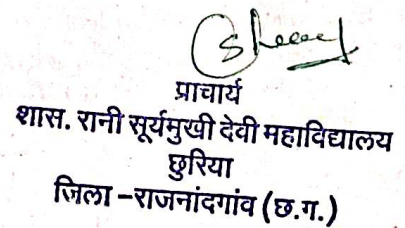 प्राचार्य
शास. रानी सूर्यमुखी देवी महाविद्यालय
छुरिया
जिला –राजनांदगांव (छ.ग.)